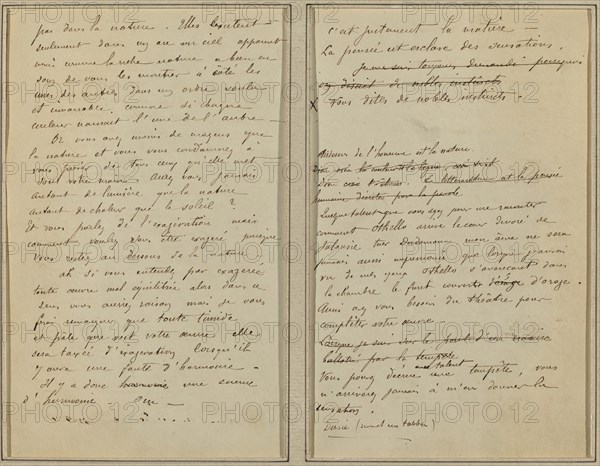 pas dans la nature. Elles existent
seulement dans un arc en ciel apparent
mais comme la riche nature a bien eu
soin de vous les montrer à côté les
unes des autres dans un ordre voulu
et immuable comme si chaque
couleur naissait l'une de l'autre
Or vous avez moins de moyens que
la nature et vous vous condamnez à
vous priver de tous ceux qu'elle met
sous votre main. Aurez vous jamais
autant de lumière que la nature
autant de chaleur que le soleil ?
Et vous parlez de l'exagération mais
comment voulez vous être exagéré puisque
vous restez au dessous de la nature
ah si vous entendez par exagérée
toute œuvre mal équilibrée alors dans ce
sens vous aurez raison mais je vous
ferai remarquer que toute timide
et pâle que soit votre œuvre elle
sera taxée d'exagération lorsqu'il
y aura une faute d'harmonie.
Il y a donc harmonie une science
d'harmonie Oui
c'est justement la matière
La pensée est esclave des sensations.
Je me suis toujours demandé pourquoi
on disait de nobles instincts
x Vous dites de nobles instincts.
dessus de l'homme est la nature.
La littérature est la pensée
humaine décrite par la parole
Quelque talent que vous ayez pour me raconter
comment Othello arrive le cœur dévoré de
jalousie tuer Desdémone mon âme ne sera
jamais aussi impressionnée que lorsque j'aurai
vu de mes yeux Othello s'avançant dans
la chambre le front couvert d'orage.
Aussi avez vous besoin du théâtre pour
compléter votre œuvre
Lorsque je suis sur le pont d'un navire
ballotté par la tempête
talent
Vous pouvez décrire une tempête, vous
n'arriverez jamais à m'en donner la
sensation.